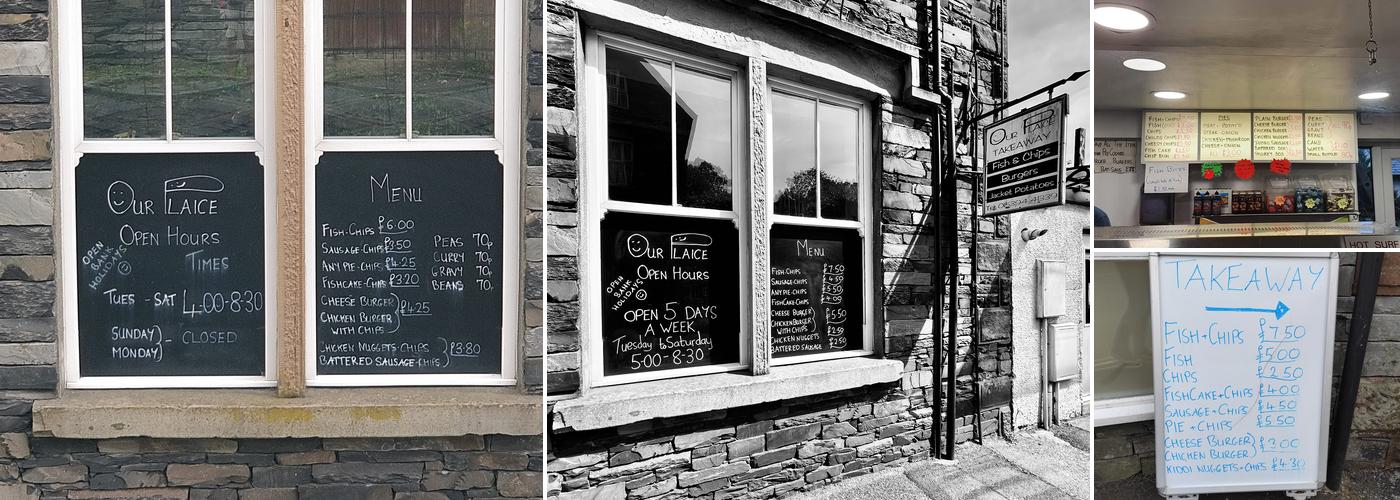 OUR PLAICE
OPEN HOURS
OPEN
BANK
HOLIDAYS
TIMES
TUES - SAT 4.00-8.30
SUNDAY) - CLOSED
MONDAY)
MENU
FISH-CHIPS £6.00
SAUSAGE-CHIPS £3.50
ANY PIE-CHIPS £4.25
FISHCAKE-CHIPS £3.20
CHEESE BURGER)
CHICKEN BURGER) £4.25
WITH CHIPS)
CHICKEN NUGGETS-CHIPS
BATTERED SAUSAGE-CHIPS) £3.80
PEAS 70p
CURRY 70p
GRAVY 70p
BEANS 70p
OUR PLAICE
OPEN HOURS
OPEN
BANK
HOLIDAYS
OPEN 5 DAYS
A WEEK
Tuesday to Saturday
5:00-8:30
MENU
FISH-CHIPS £7.50
SAUSAGE-CHIPS £4.50
ANY PIE-CHIPS £5.50
FISHCAKE-CHIPS £4.00
CHEESE BURGER)
CHICKEN BURGER) £5.50
WITH CHIPS)
CHICKEN NUGGETS £2.50
BATTERED SAUSAGE £2.50
OUR PLAICE
TAKEAWAY
Fish & Chips
Burgers
Jacket Potatoes
PLAIN BURGER
CHEESE BURGER
CHICKEN BURGER
PEAS
CURRY
GRAVY
BEANS
HOT SURF
TAKEAWAY
FISH+CHIPS £7.50
FISH £5.00
CHIPS £2.50
FISHCAKE+CHIPS £4.00
SAUSAGE+CHIPS £4.50
PIE+CHIPS £5.50
CHEESE BURGER)
CHICKEN BURGER) £3.00
KIDDI NUGGETS-CHIPS £4.30